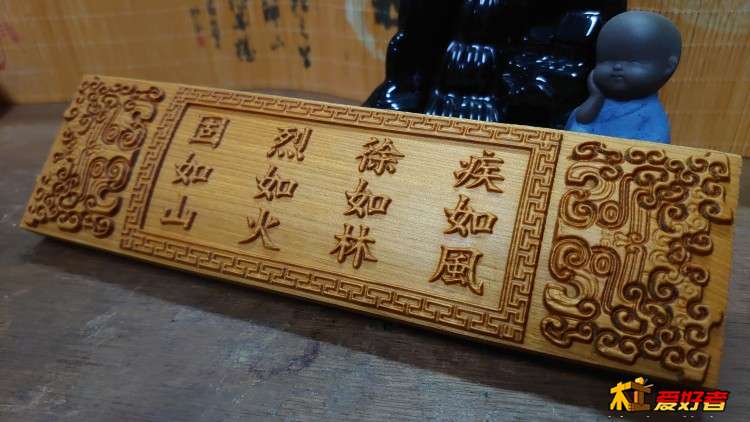 疾如風
徐如林
烈如火
固如山
木工爱好者